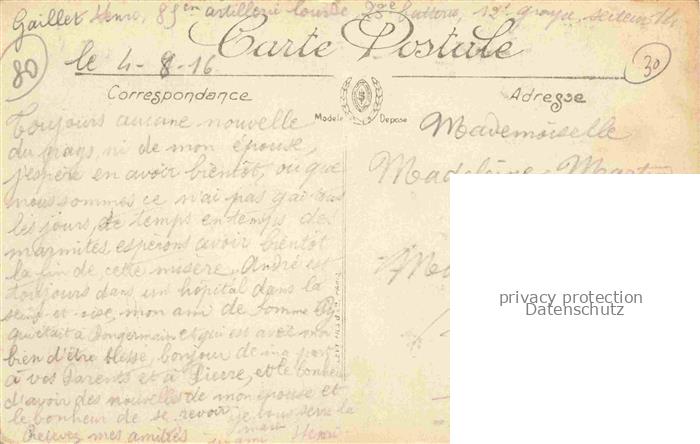 Gaillet Henri, 85em artillerie lourde batterie, 12e groupe, secteur 14
Carte Postale
80
le 4-8-16
30
Correspondance
Adresse
Modele Depose
Toujours aucune nouvelle
du pays, ni de mon épouse,
j'espère en avoir bientôt, ou que
nous sommes ce n'ai pas gai tous
les jours, de temps en temps des
marmites, espérons avoir bientôt
la fin de cette misère. André est
toujours dans un hôpital dans la
seine et oise, mon ami de
qui était à et qui est avec moi
bien d'être blessé, bonjour de ma part
à vos Parents et à Pierre, et le bonheur
d'avoir des nouvelles de mon épouse et
le bonheur de se revoir, je vous serre la
main
Recevez mes amitiés
Henri
Mademoiselle
Madeleine
privacy protection
Datenschutz